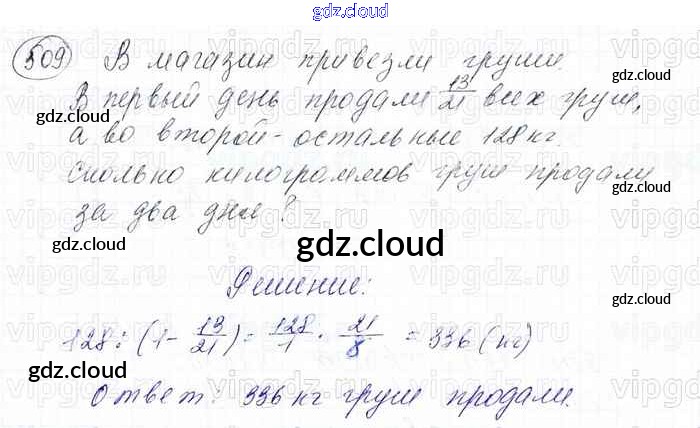 gdz.cloud
509 В магазин привезли груши.
В первый день продали 13/21 всех груш,
а во второй - остальные 128 кг.
Сколько килограммов груш продали
за два дня?
gdz.cloud
gdz.cloud
gdz.cloud
gdz.cloud
gdz.cloud
gdz.cloud
Решение:
128 : (1 - 13/21) = 128/1 · 21/8 = 336 (кг)
gdz.cloud
gdz.cloud
Ответ: 336 кг груш продали.